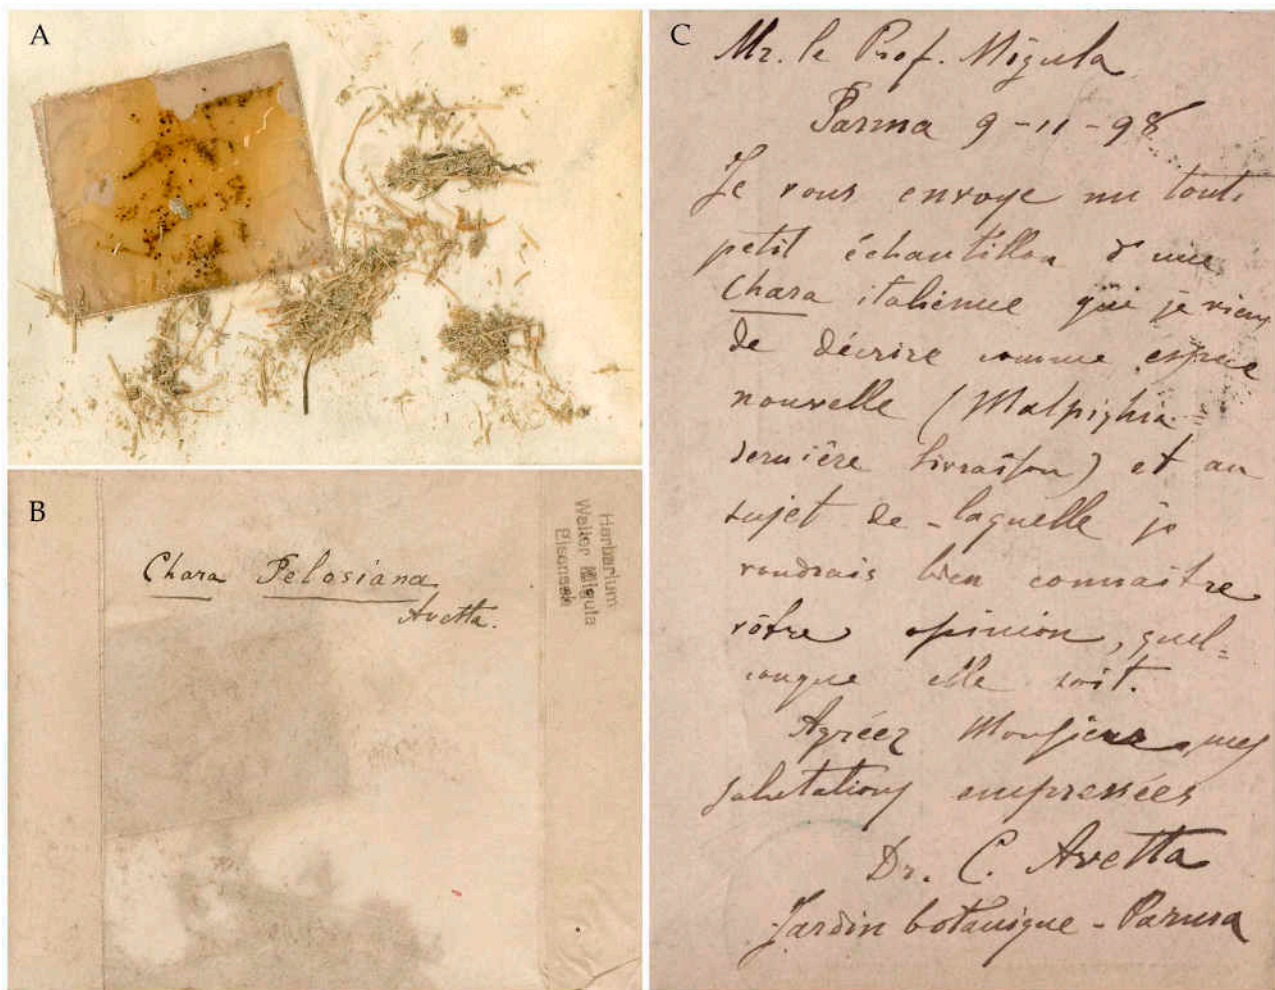 A
B
Chara Pelosiana
Avetta.
Herbarium
Walter Migula
Eisenach
C
Mr. le Prof. Migula
Parma 9-11-98
Je vous envoye un tout
petit échantillon d'une
Chara italienne que je viens
de décrire comme espèce
nouvelle (Malpighia
dernière livraison) et au
sujet de-laquelle je
voudrais bien connaître
vôtre opinion, quel=
conque elle soit.
Agréez Monsieur mes
salutations empressées
Dr. C. Avetta
Jardin botanique - Parma